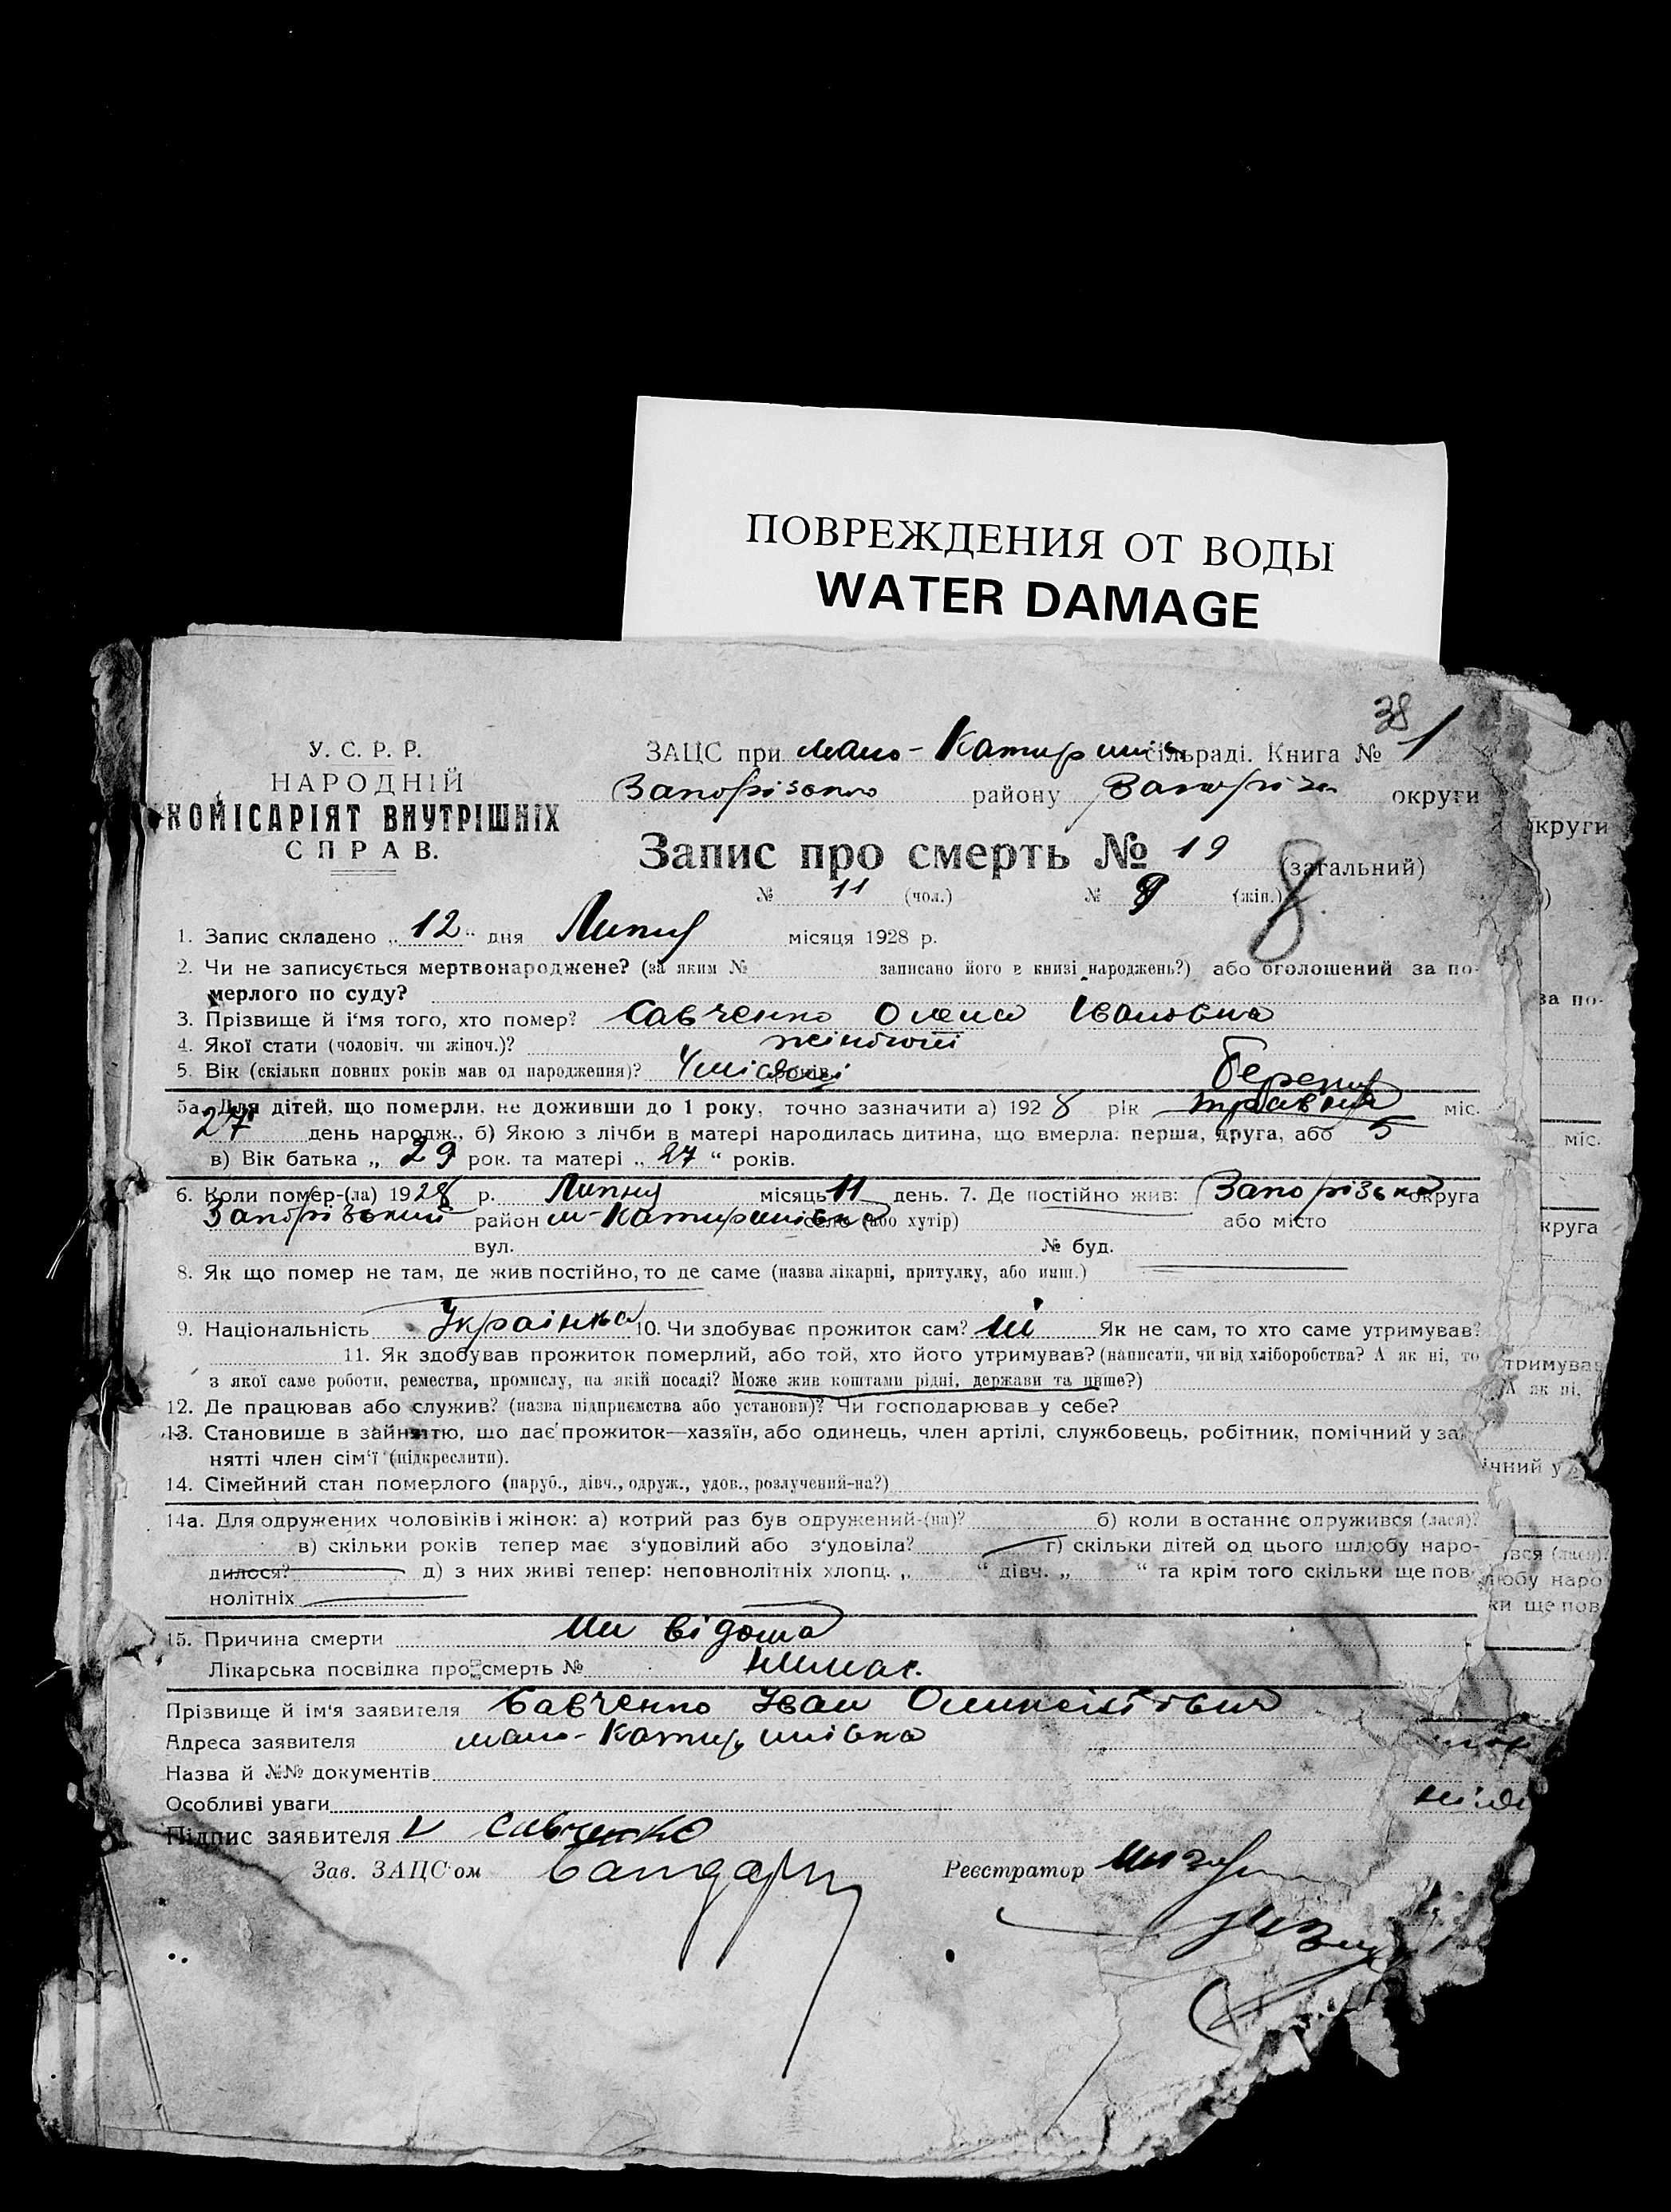 ПОВРЕЖДЕНИЯ ОТ ВОДЫ
WATER DAMAGE
38
У. С. Р. Р.
НАРОДНІЙ
КОМІСАРІЯТ ВНУТРІШНІХ
СПРАВ.
ЗАЦС при мало-Катериш сільраді. Книга № 1
Запорізького району Запоріз округи
Запис про смерть № 19 (загальний)
№ 11 (чол.) № 8 (жін.) 8
1. Запис складено „12“ дня Липня місяця 1928 р.
2. Чи не записується мертвонароджене? (за яким № записано його в книзі народжень?) або оголошений за по-
мерлого по суду?
3. Прізвище й і'мя того, хто помер? Савченко Олена Івановна
4. Якої стати (чоловіч. чи жіноч.)? жіночої
5. Вік (скільки повних років мав од народження)? 4 місяці років
Березня
5а. Для дітей, що померли, не доживши до 1 року, точно зазначити а) 1928 рік травня міс.
27 день народж., б) Якою з лічби в матері народилась дитина, що вмерла: перша, друга, або 5
в) Вік батька „29 рок. та матері „27“ років.
6. Коли помер-(ла) 1928 р. Липня місяць 11 день. 7. Де постійно жив: Запорізька округа
Запорізький район м-Катиришівка село (або хутір) або місто
вул. № буд.
8. Як що помер не там, де жив постійно, то де саме (назва лікарні, притулку, або инш.)
9. Національність Українка 10. Чи здобуває прожиток сам? ні Як не сам, то хто саме утримував?
11. Як здобував прожиток померлий, або той, хто його утримував? (написати, чи від хліборобства? А як ні, то
з якої саме роботи, ремества, промислу, на якій посаді? Може жив коштами рідні, держави та инше?)
12. Де працював або служив? (назва підприємства або установи)? Чи господарював у себе?
13. Становище в зайняттю, шо дає прожиток—хазяїн, або одинець, член артілі, службовець, робітник, помічний у за-
нятті член сім'ї (підкреслити).
14. Сімейний стан померлого (паруб., дівч., одруж., удов., розлучений-на?)
14а. Для одружених чоловіків і жінок: а) котрий раз був одружений-(на)? б) коли в останнє одружився (лася)?
в) скільки років тепер має з'удовілий або з'удовіла? г) скільки дітей од цього шлюбу наро-
дилося? д) з них живі тепер: неповнолітніх хлопц. „ “ дівч. „ “ та крім того скільки ще пов-
нолітніх
15. Причина смерти Ни відома
Лікарська посвідка про смерть № нимає.
Прізвище й ім'я заявителя Савченко Іван Оликсійович
Адреса заявителя мало-Катиришівка
Назва й №№ документів
Особливі уваги
Підпис заявителя V Савченко
Зав. ЗАЦС'ом Бандар Реєстратор
округи
за по-
міс.
округа
тримував
А як ні,
ічний у за
ився (лася)?
шлюбу наро
ки ще пов